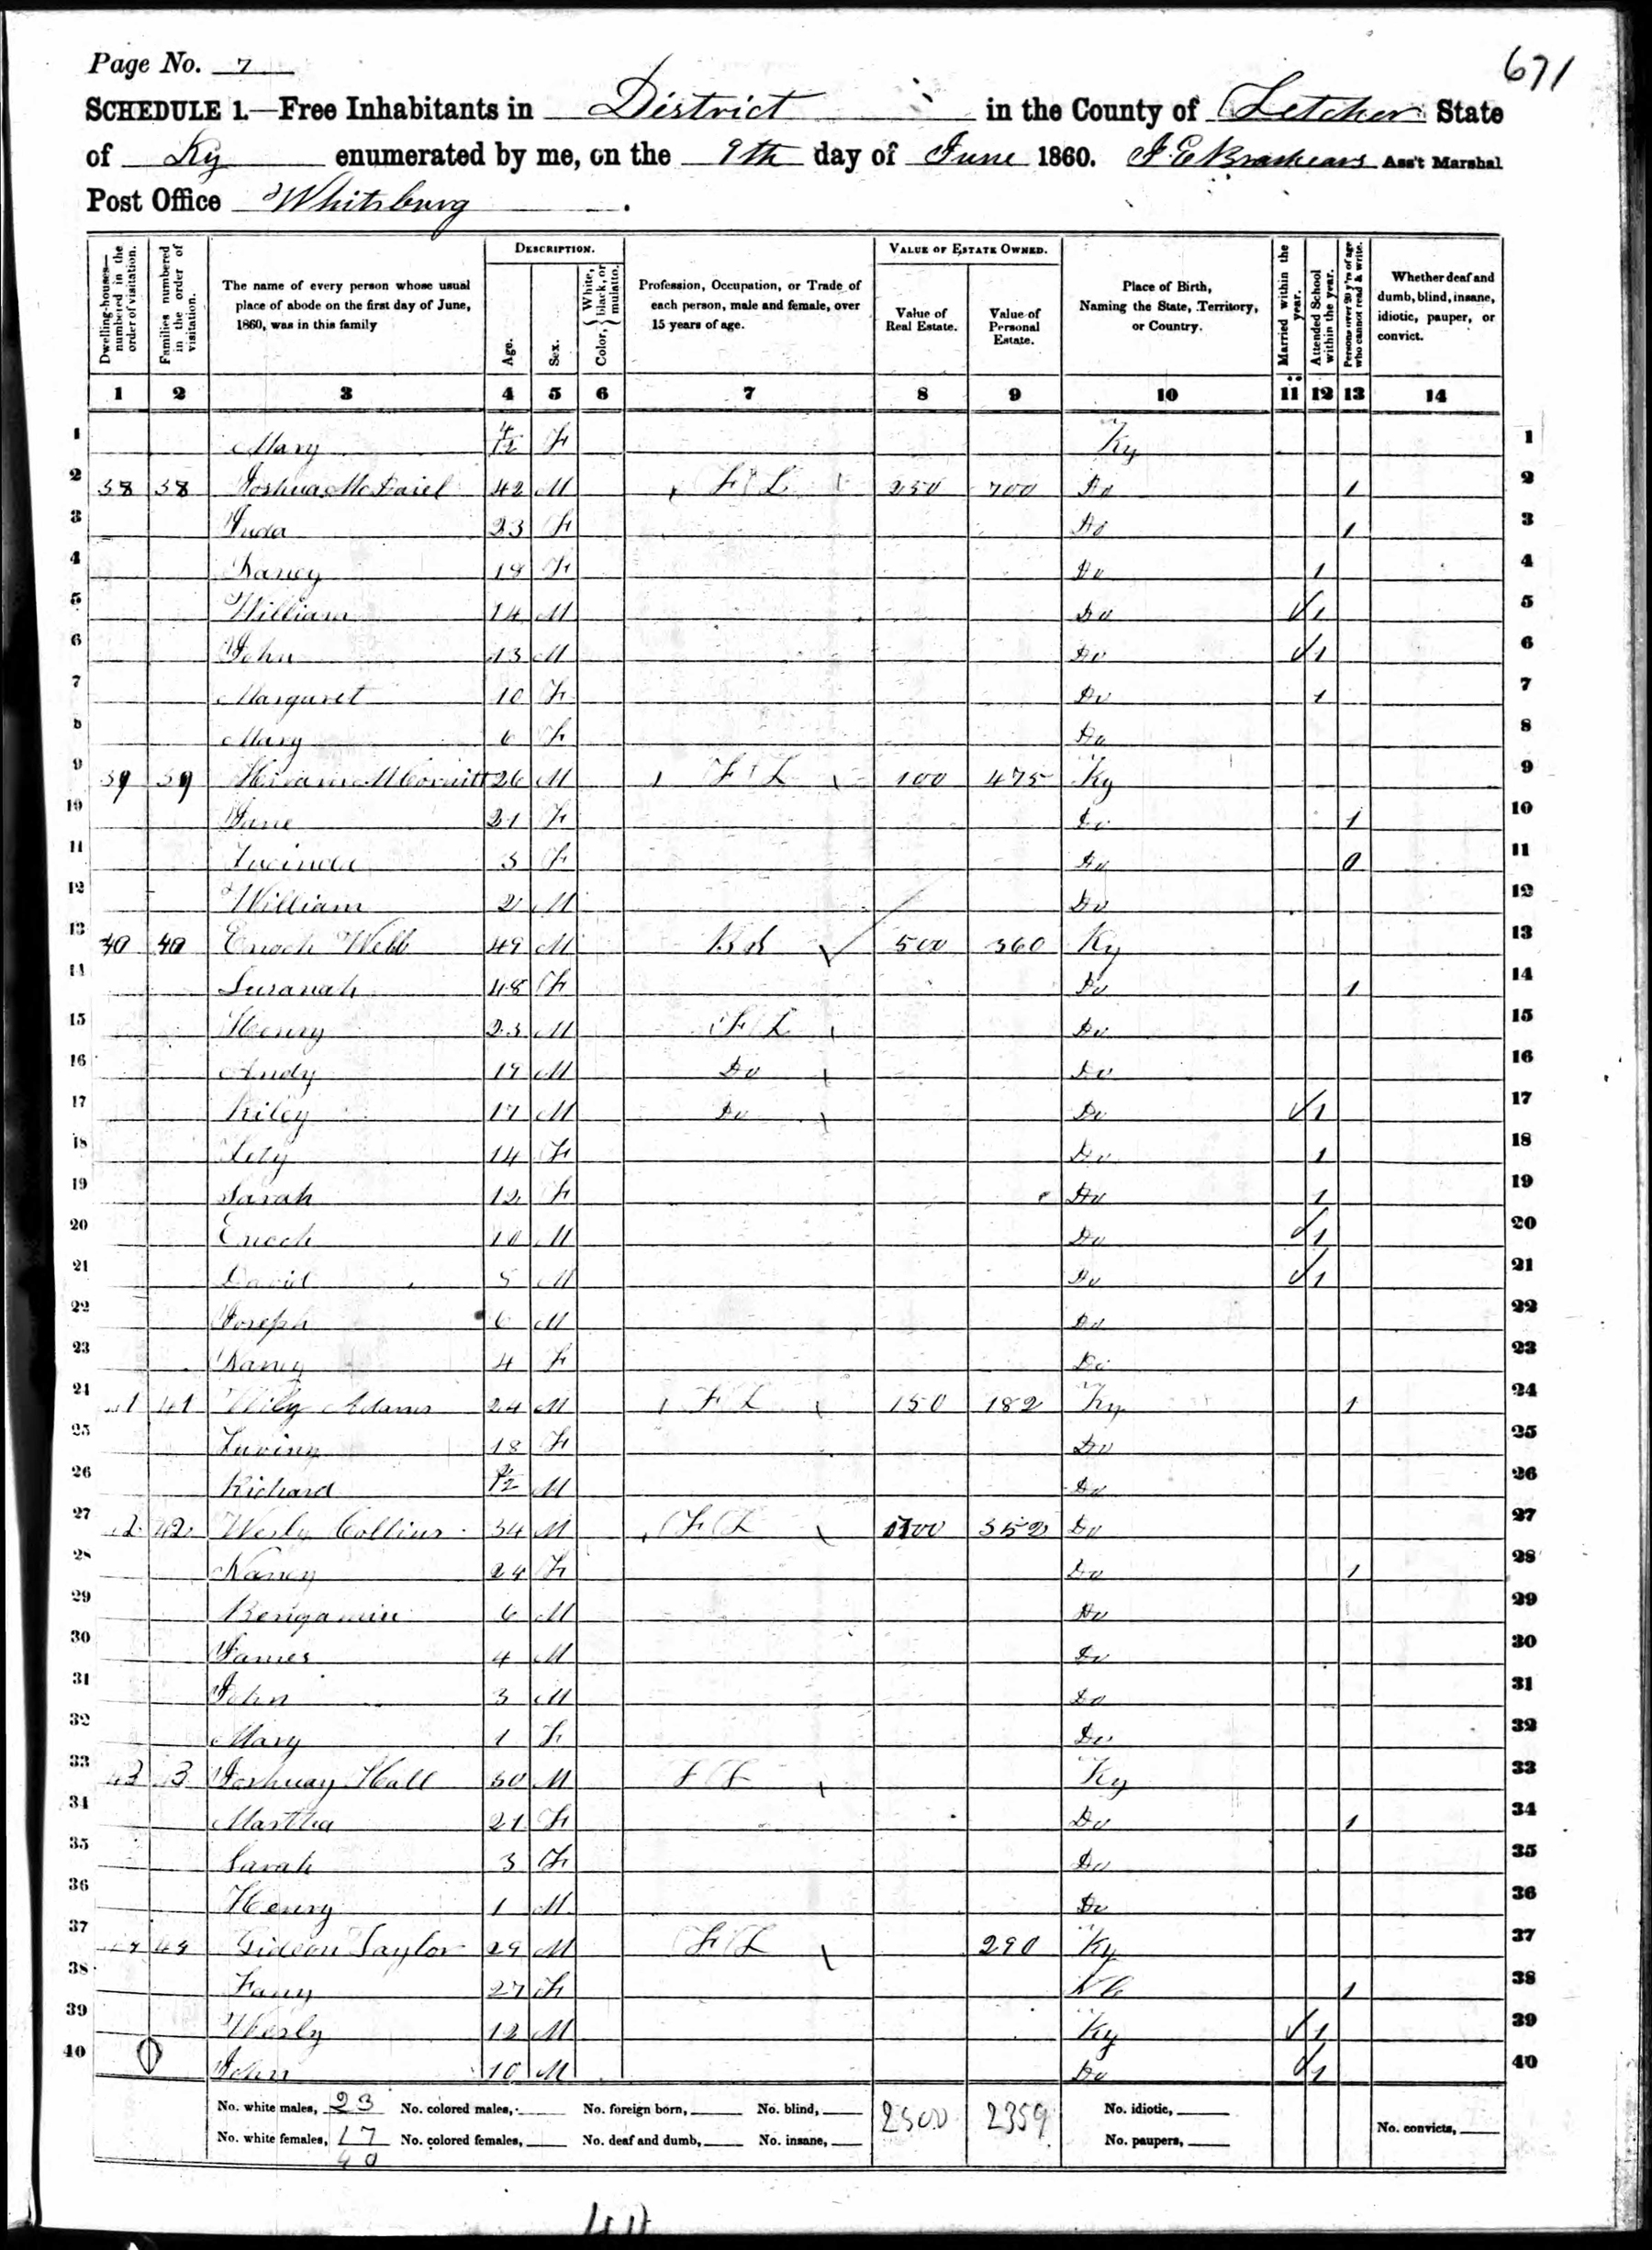 671
Page No. 7
SCHEDULE 1.—Free Inhabitants in District in the County of Letcher State
of Ky enumerated by me, on the 9th day of June 1860. J. E. Brashears Ass't Marshal
Post Office Whitsburg.
Dwelling-houses—numbered in the order of visitation. Families numbered in the order of visitation. The name of every person whose usual place of abode on the first day of June, 1860, was in this family DESCRIPTION. Age. Sex. Color, { White, black, or mulatto. Profession, Occupation, or Trade of each person, male and female, over 15 years of age. VALUE OF ESTATE OWNED. Value of Real Estate. Value of Personal Estate. Place of Birth, Naming the State, Territory, or Country. Married within the year. Attended School within the year. Persons over 20 y'rs of age who cannot read & write. Whether deaf and dumb, blind, insane, idiotic, pauper, or convict.
1 2 3 4 5 6 7 8 9 10 11 12 13 14
1 Mary 4/12 F Ky 1
2 38 38 Joshua 42 M F L 250 700 Do 1 2
3 23 F Do 1 3
4 Nancy 18 F Do 1 4
5 William 14 M Do 1 5
6 John 13 M Do 1 6
7 Margaret 10 F Do 1 7
8 Mary 6 F Do 8
9 39 39 Hiram 26 M F L 100 475 Ky 9
10 Jane 21 F Do 1 10
11 Lucinda 3 F Do 0 11
12 William 2 M Do 12
13 40 40 Enoch Webb 49 M 500 360 Ky 13
14 Susanah 48 F Do 1 14
15 Henry 23 M F L Do 15
16 Andy 19 M Do Do 16
17 Riley 17 M Do Do 1 17
18 Lety 14 F Do 1 18
19 Sarah 12 F Do 1 19
20 Enoch 10 M Do 1 20
21 David M Do 1 21
22 Joseph 6 M Do 22
23 Nancy 4 F Do 23
24 41 Wily Adams 24 M F L 150 182 Ky 1 24
25 18 F Do 25
26 Richard M Do 26
27 42 Wesly Collins 34 M F L 352 Do 27
28 Nancy 24 F Do 1 28
29 Bengamin 6 M Do 29
30 James 4 M Do 30
31 John 3 M Do 31
32 Mary 1 F Do 32
33 43 Joshuay Hall 30 M F L Ky 33
34 Martha 21 F Do 1 34
35 Sarah 3 F Do 35
36 Henry 1 M Do 36
37 Gideon Taylor 29 M F L 290 Ky 37
38 Fany 27 F 1 38
39 Wesly 12 M Ky 1 39
40 John 10 M Do 1 40
No. white males, 23 No. colored males, No. foreign born, No. blind, 2500 2359 No. idiotic,
No. white females, 17 No. colored females, No. deaf and dumb, No. insane, No. paupers, No. convicts,
40